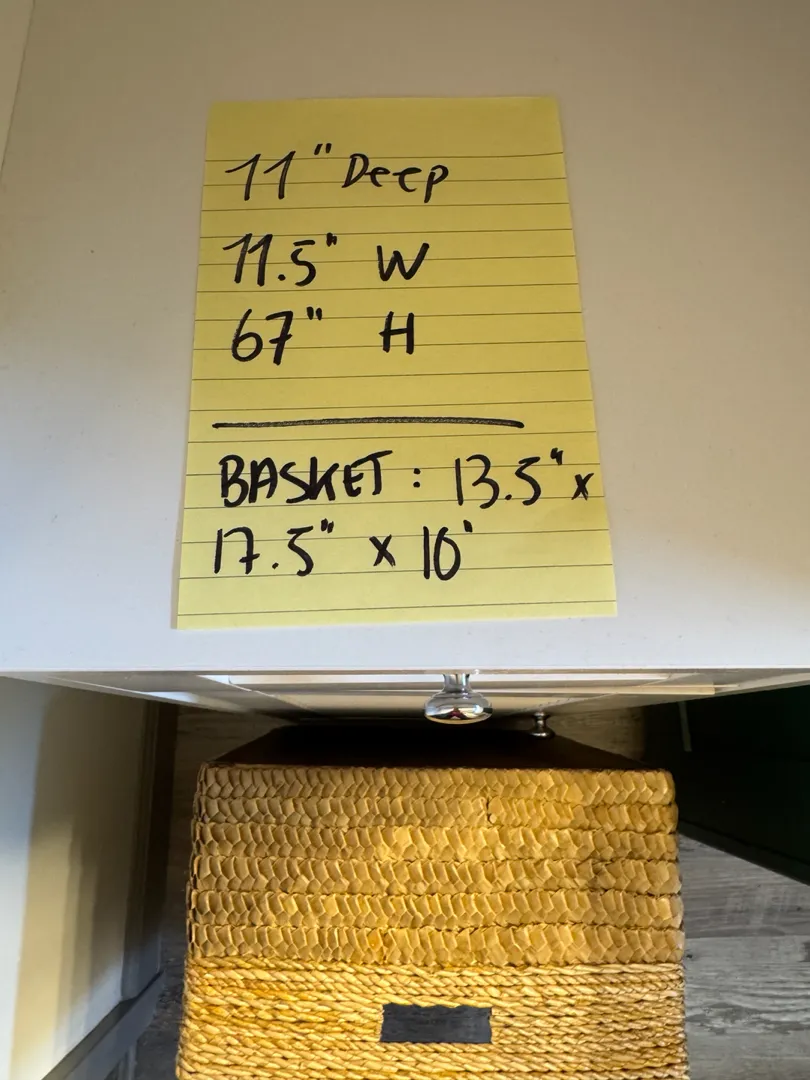 11" Deep
11.5" W
67" H
BASKET: 13.5" x
17.5" x 10'